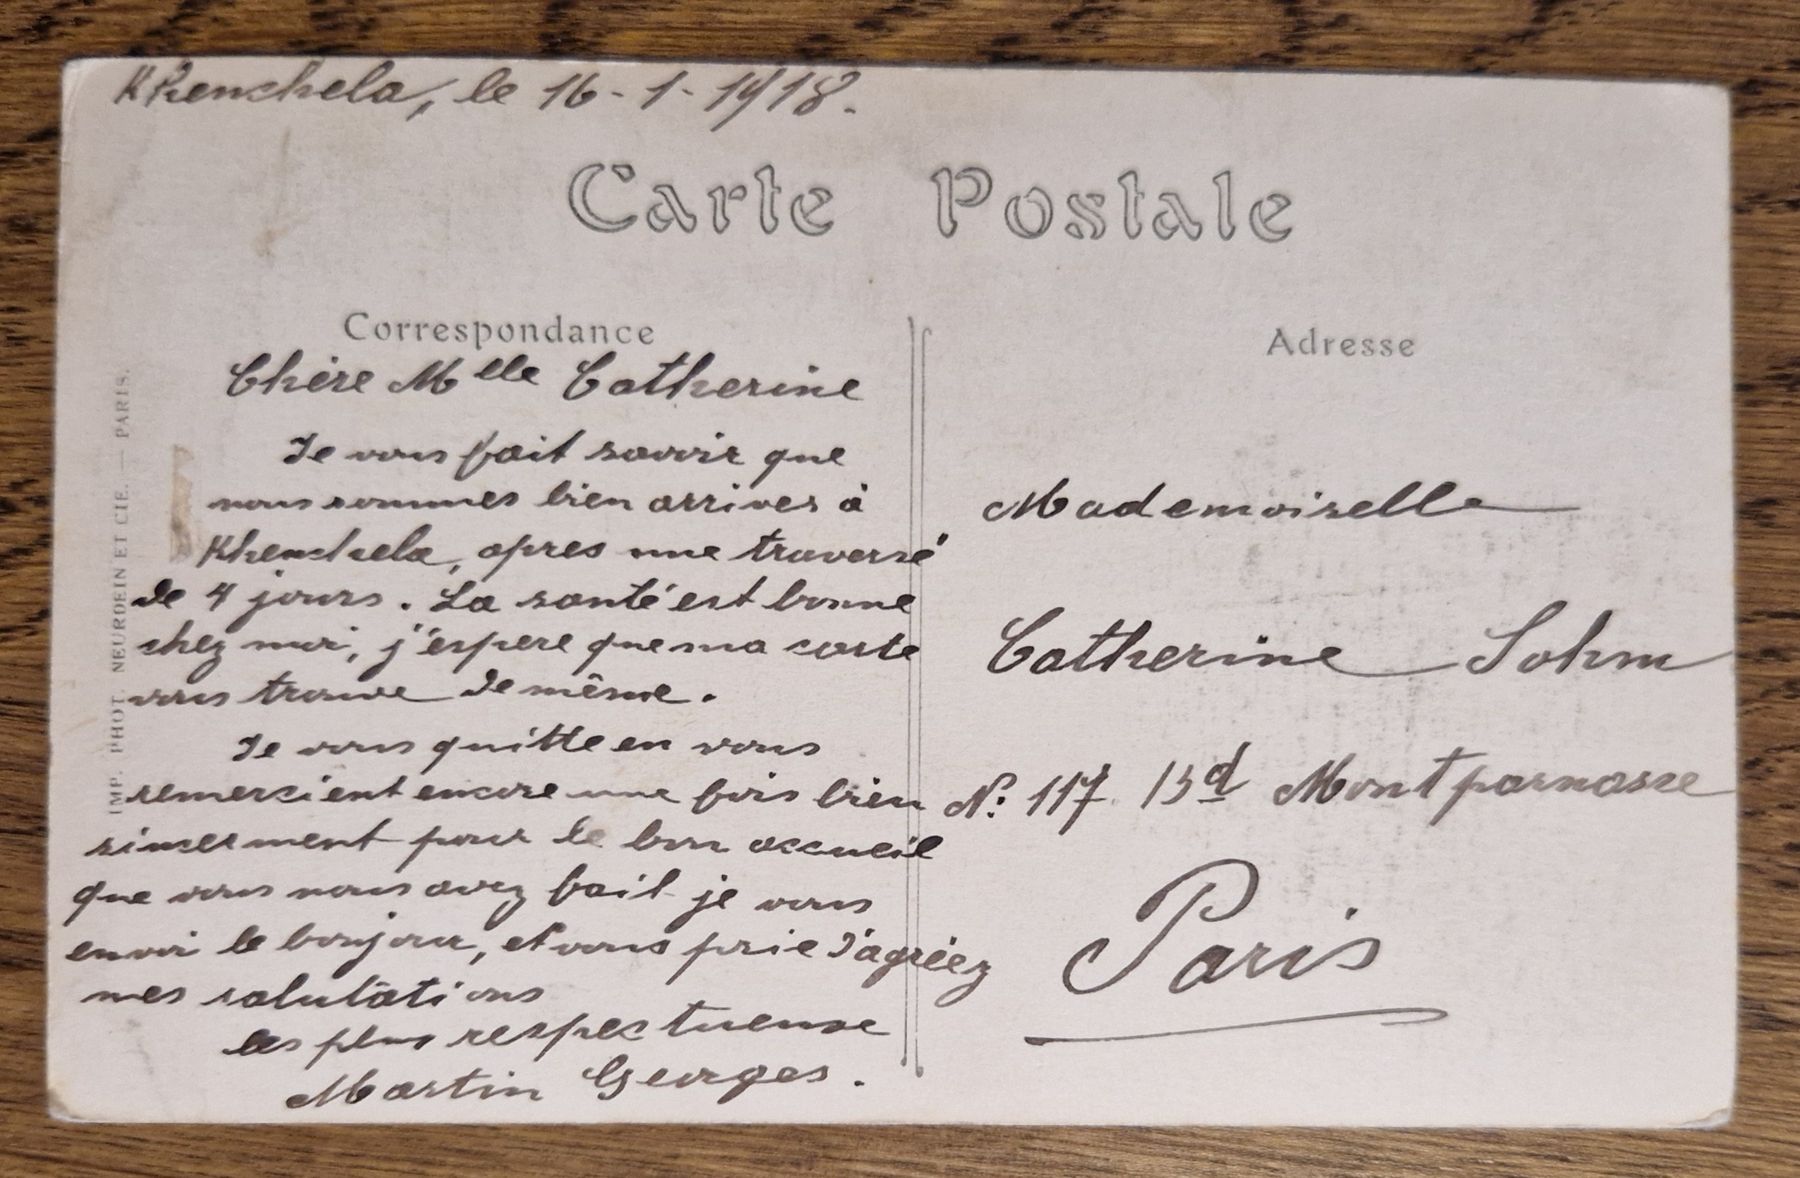 Khenchela, le 16-1-1918.
Carte Postale
Correspondance
Chère Mlle Catherine
Je vous fait savoir que
nous sommes bien arrives à
Khenchela, apres une traversé
de 4 jours. La santé est bonne
chez moi, j'espere que ma carte
vous trouve de même.
Je vous quitte en vous
remercient encore une fois bien
sincerment pour le bon accueil
que vous nous avez fait je vous
envoi le bonjour, et vous prie d'agréez
mes salutations
les plus respectueuse
Martin Georges.
Adresse
Mademoiselle
Catherine Sohm
N° 117 Bd Montparnasse
Paris
IMP. PHOT. NEURDEIN ET CIE. — PARIS.